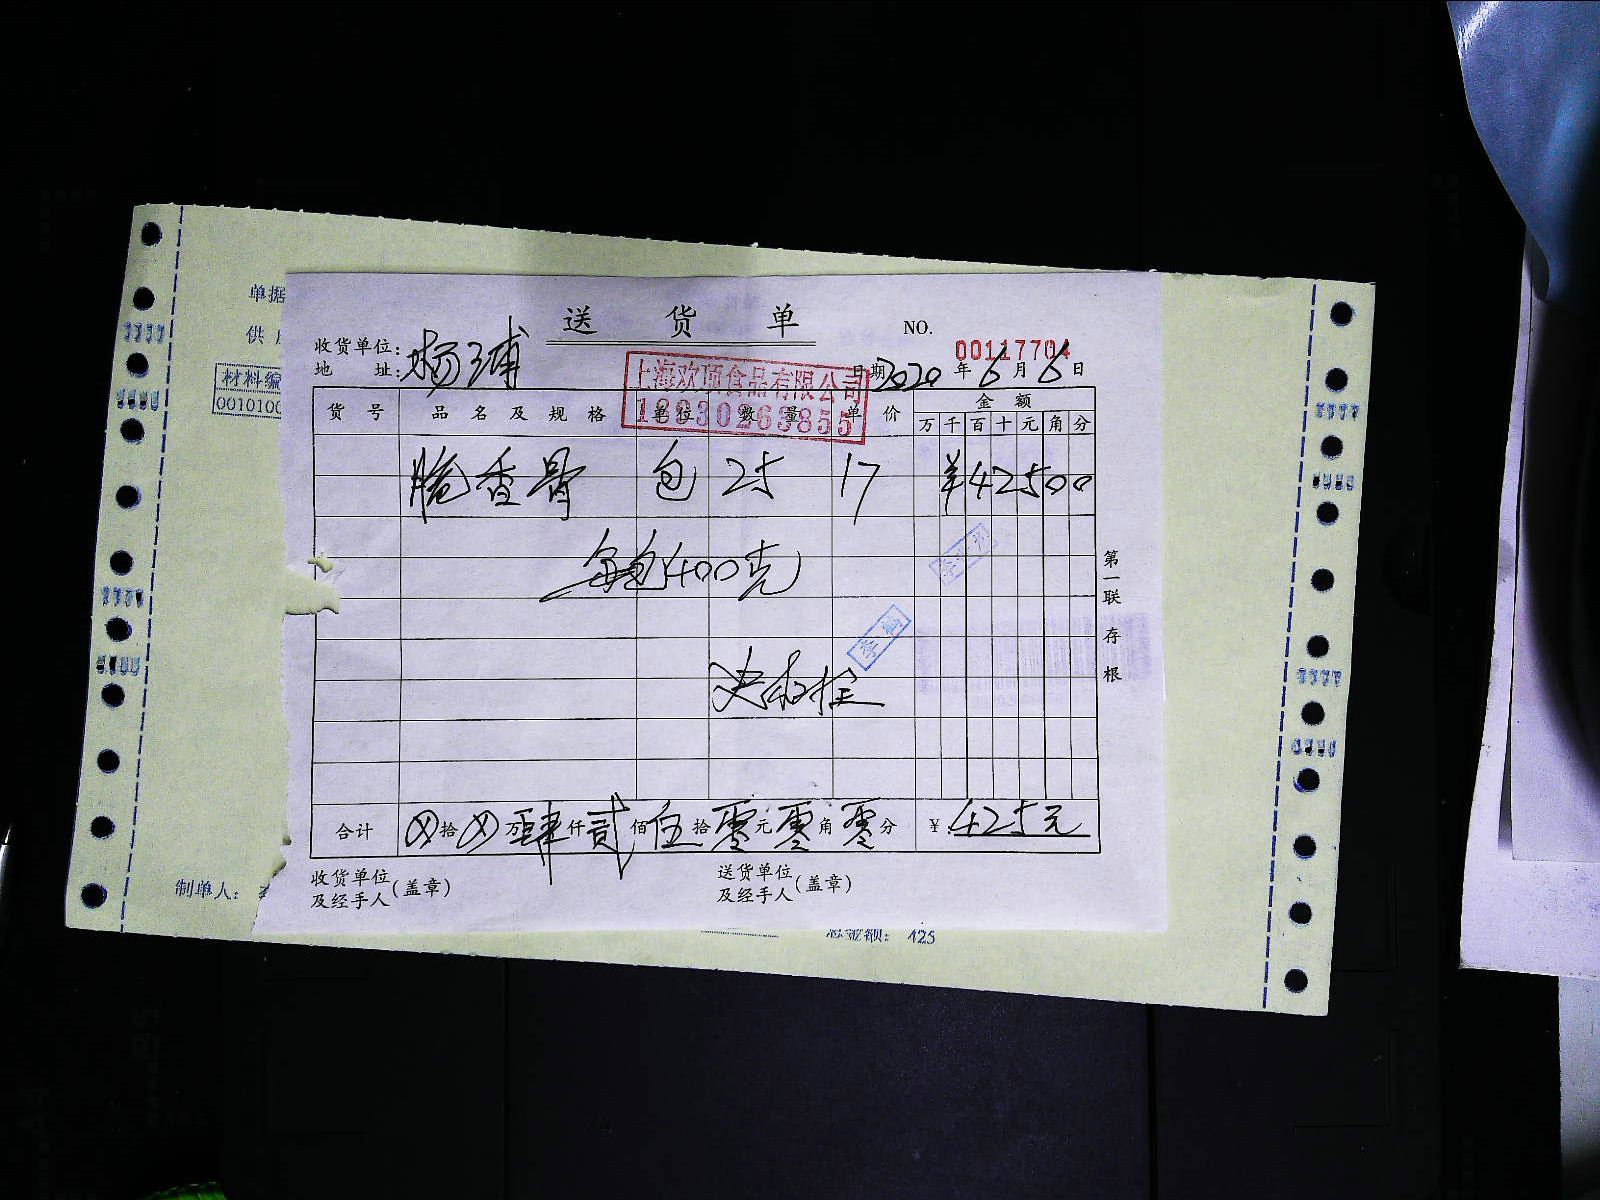 单据
供
材料编
0010100
送货单
NO.
00117704
收货单位:
地 址:
杨浦
上海欢项食品有限公司
日期2020年6月6日
货号 品名及规格 单位 数量 单价 金额
万千百十元角分
脆香骨 包 25 17 ¥42500
每包400克
第一联 存根
合计 ⊗拾⊗万肆仟贰佰伍拾零元零角零分 ¥425元
收货单位
及经手人(盖章)
送货单位
及经手人(盖章)
制单人:
总金额: 425